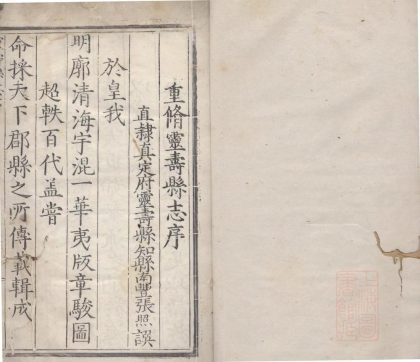 重脩靈壽縣志序
直隸真定府靈壽縣知縣南豐張照譔
於皇我
明廓清海宇混一華夷版章駿圖
超軼百代盖嘗
命採天下郡縣之所傳載輯成